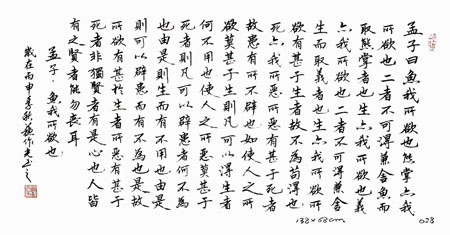 孟子曰魚我所欲也熊掌亦我
所欲也二者不可得兼舍魚而
取熊掌者也生亦我所欲也義
亦我所欲也二者不可得兼舍
生而取義者也生亦我所欲所
欲有甚于生者故不為苟得也
死亦我所惡所惡有甚于死者
故患有所不辟也如使人之所
欲莫甚于生則凡可以得生者
何不用也使人之所惡莫甚于
死者則凡可以辟患者何不為
也由是則生而有不用也由是
則可以辟患而有不為也是故
所欲有甚於生者所惡有甚于
死者非獨賢者有是心也人皆
有之賢者能勿喪耳
孟子·魚我所欲也
歲在丙申季秋
138×68cm
028